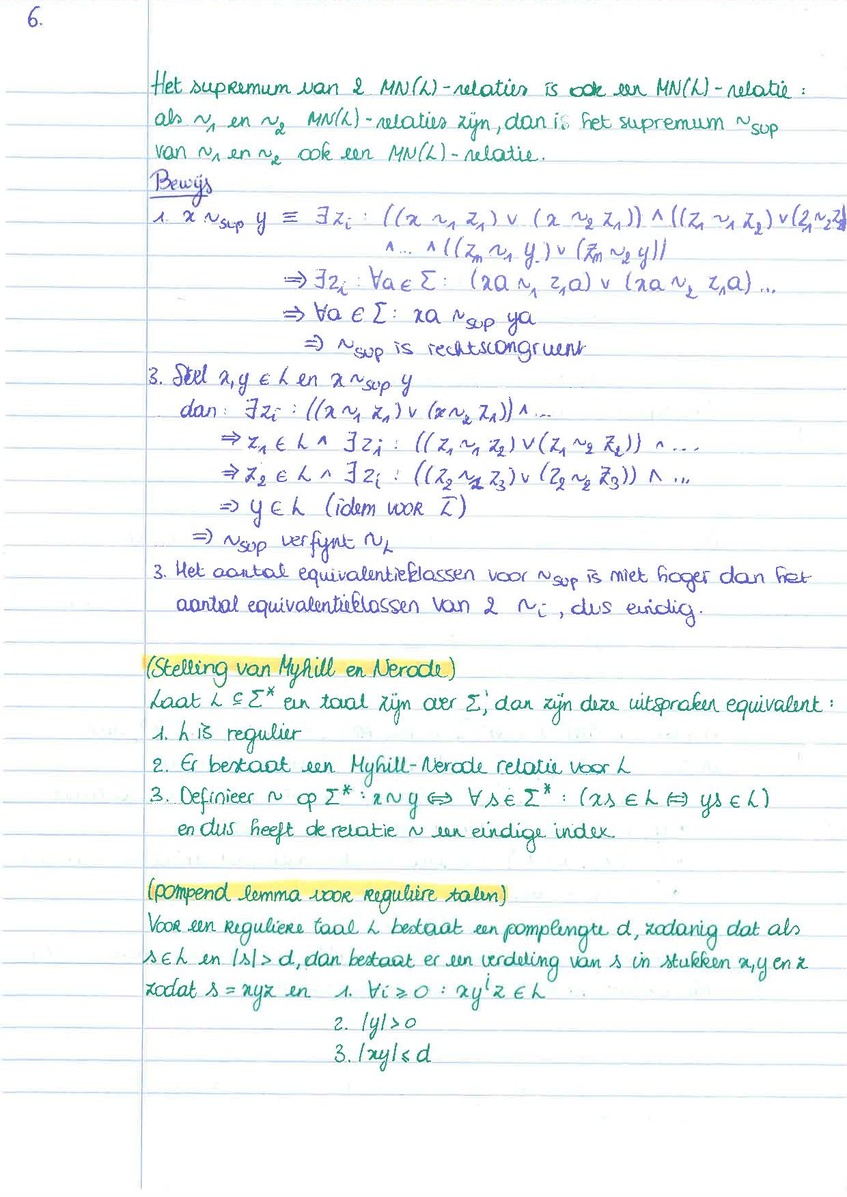 6.
Het supremum van 2 MN(L)-relaties is ook een MN(L)-relatie:
als ~₁ en ~₂ MN(L)-relaties zijn, dan is het supremum ~sup
van ~₁ en ~₂ ook een MN(L)-relatie.
Bewijs
1. x ~sup y ≡ ∃zᵢ : ((x ~₁ z₁) ∨ (x ~₂ z₁)) ∧ ((z₁ ~₁ z₂) ∨ (z₁ ~₂ z₂))
∧ ... ∧ ((zₙ ~₁ y) ∨ (zₙ ~₂ y))
⇒ ∃zᵢ : ∀a ∈ Σ : (xa ~₁ z₁a) ∨ (xa ~₂ z₁a) ...
⇒ ∀a ∈ Σ : xa ~sup ya
⇒ ~sup is rechtscongruent
3. Stel x, y ∈ L en x ~sup y
dan: ∃zᵢ : ((x ~₁ z₁) ∨ (x ~₂ z₁)) ∧ ...
⇒ z₁ ∈ L ∧ ∃zᵢ : ((z₁ ~₁ z₂) ∨ (z₁ ~₂ z₂)) ∧ ...
⇒ z₂ ∈ L ∧ ∃zᵢ : ((z₂ ~₁ z₃) ∨ (z₂ ~₂ z₃)) ∧ ...
⇒ y ∈ L (idem voor L̅)
⇒ ~sup verfijnt ~L
3. Het aantal equivalentieklassen voor ~sup is niet hoger dan het
aantal equivalentieklassen van 2 ~ᵢ, dus eindig.
(Stelling van Myhill en Nerode)
Laat L ⊆ Σ* een taal zijn over Σ, dan zijn deze uitspraken equivalent:
1. L is regulier
2. Er bestaat een Myhill-Nerode relatie voor L
3. Definieer ~ op Σ* : x ~ y ⇔ ∀s ∈ Σ* : (xs ∈ L ⇔ ys ∈ L)
en dus heeft de relatie ~ een eindige index.
(pompend lemma voor reguliere talen)
Voor een reguliere taal L bestaat een pomplengte d, zodanig dat als
s ∈ L en |s| > d, dan bestaat er een verdeling van s in stukken x, y en z
zodat s = xyz en 1. ∀i ≥ 0 : xyⁱz ∈ L
2. |y| > 0
3. |xy| ≤ d